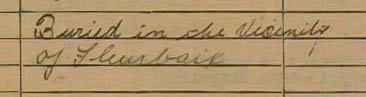 Buried in the Vicinity
of Fleurbaix